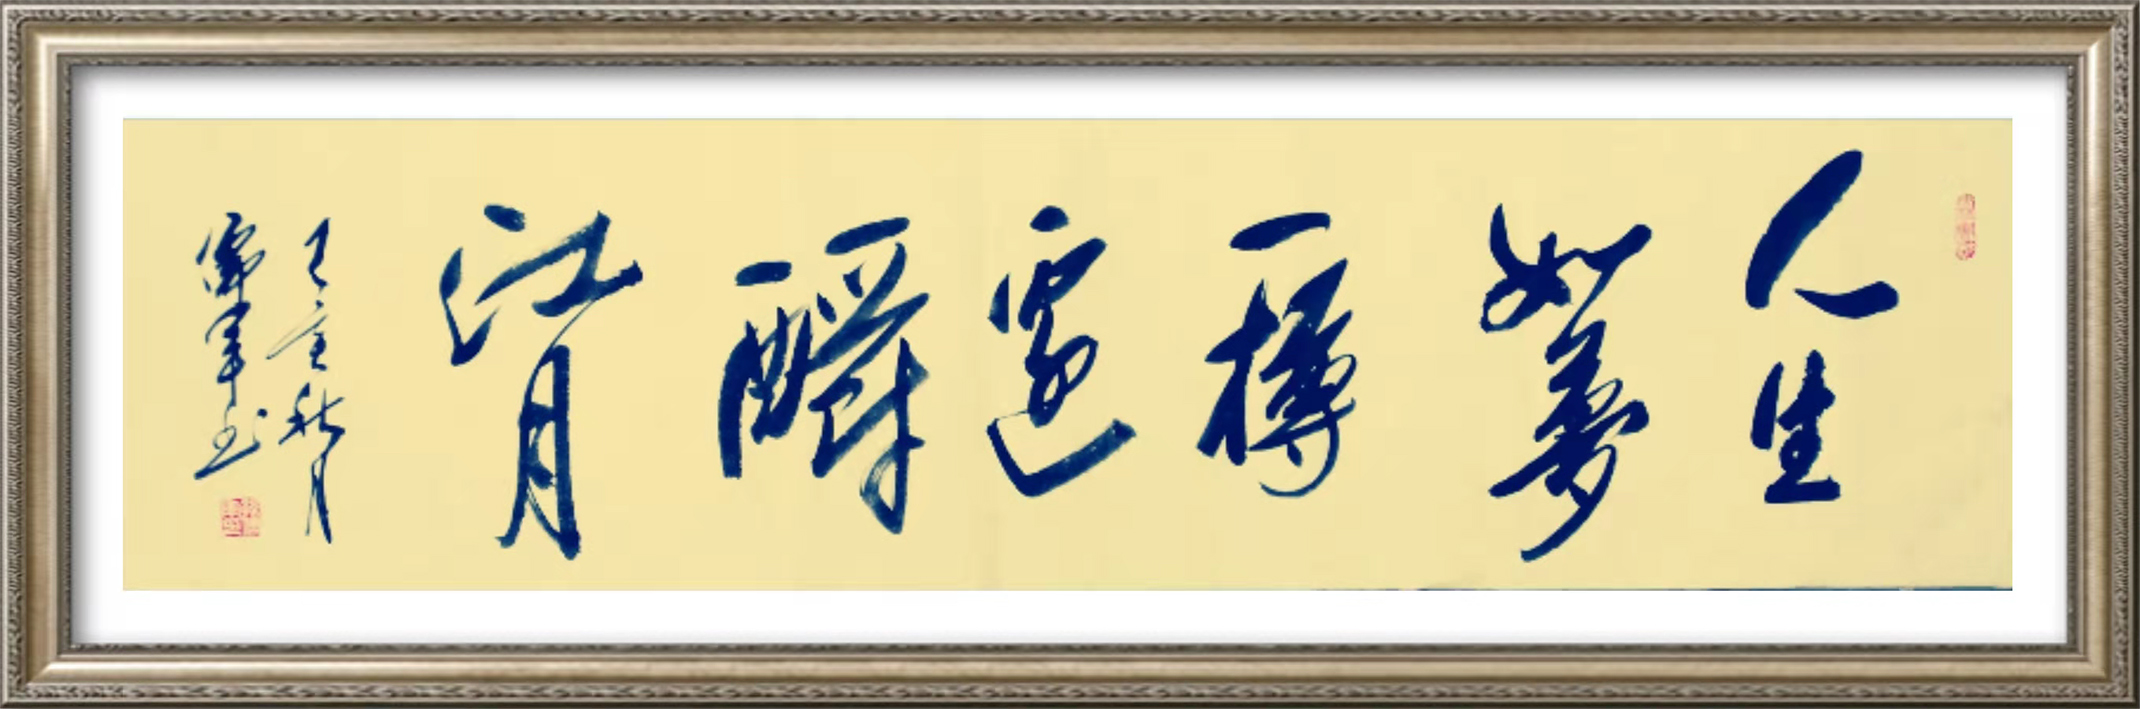 人生
如夢
一樽
還
酹
江月
壬寅秋月